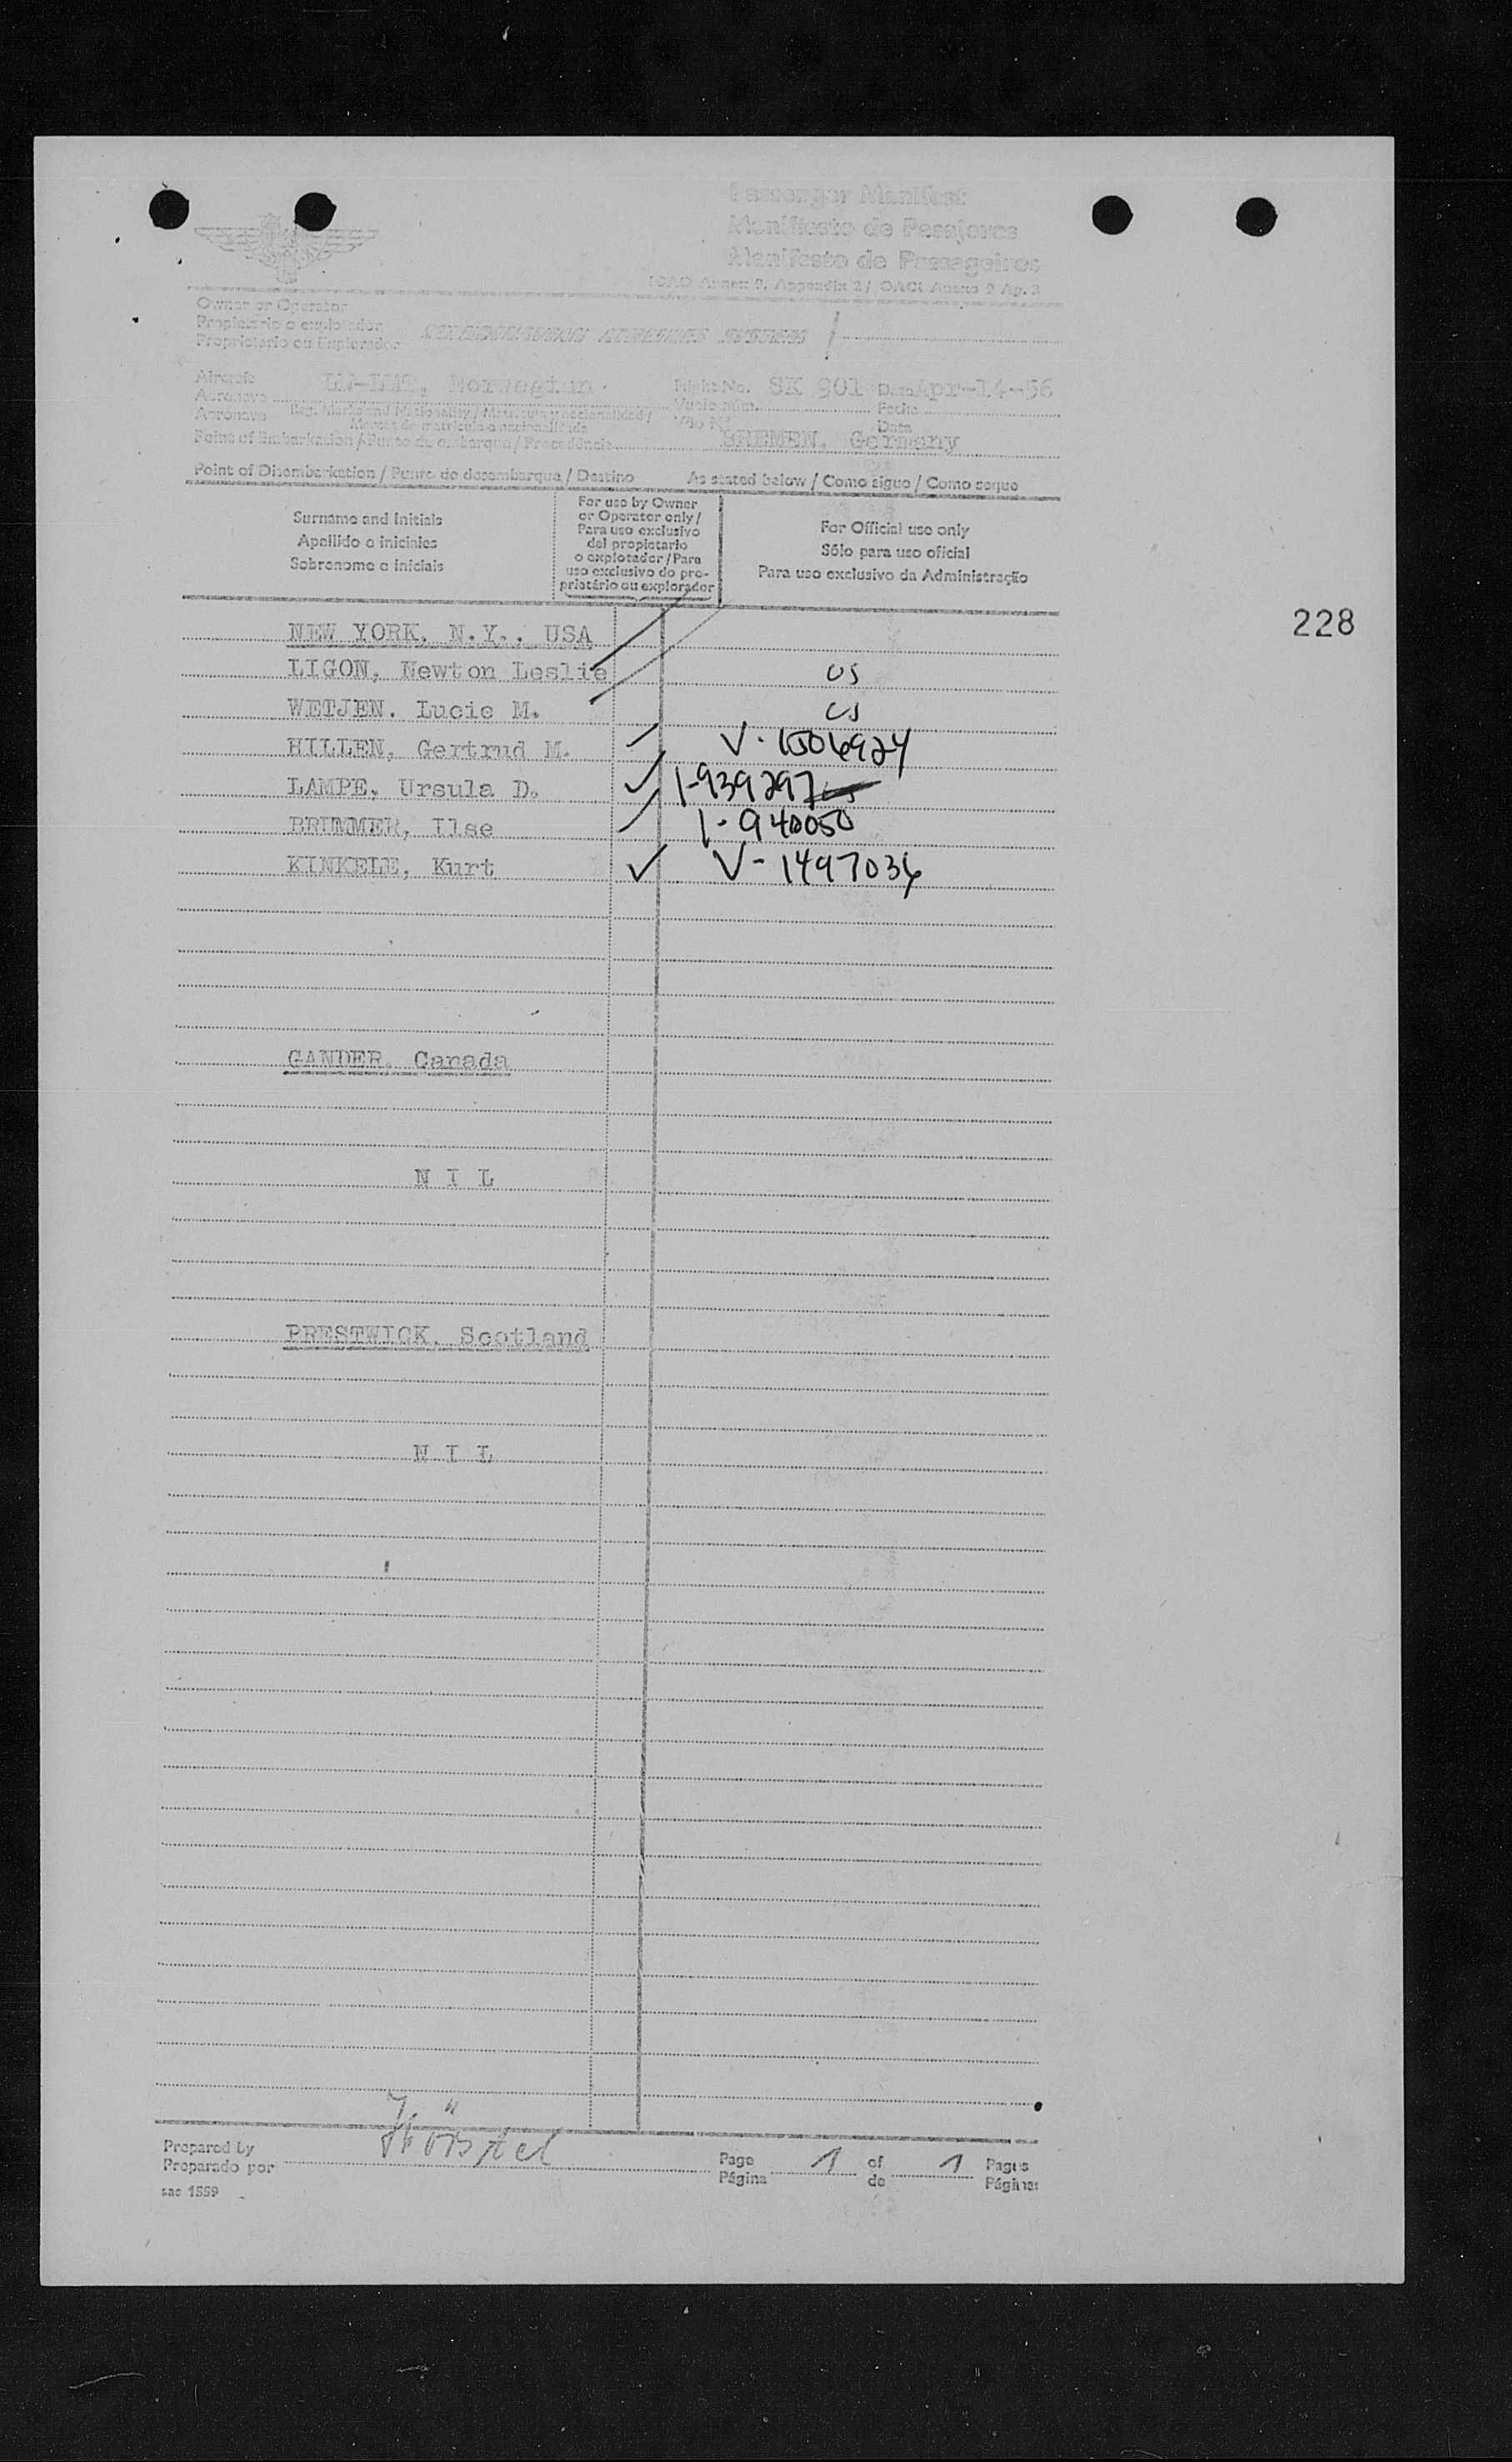 Passenger Manifest
Manifiesto de Pasajeros
Manifesto de Passageiros
ICAO Annex 9, Appendix 2 / OACI Anexo 9 Ap. 2
Owner or Operator
Propietario o explotador
Proprietário ou Explorador
SCANDINAVIAN AIRLINES SYSTEM
Aircraft
Aeronave
Aeronave
Norwegian
Reg. Marks and Nationality / Matrícula y nacionalidad /
Marcas de matrícula o nacionalidade
Flight No. SK 901
Vuelo núm.
Vôo Nº
Date Apr-14-56
Fecha
Data
Point of Embarkation / Punto de embarque / Procedência BREMEN, Germany
Point of Disembarkation / Punto de desembarque / Destino As stated below / Como sigue / Como segue
Surname and Initials
Apellido e iniciales
Sobrenome e iniciais
For use by Owner
or Operator only /
Para uso exclusivo
del propietario
o explotador / Para
uso exclusivo do pro-
prietário ou explorador
For Official use only
Sólo para uso oficial
Para uso exclusivo da Administração
228
NEW YORK, N.Y., USA
LIGON, Newton Leslie US
WETJEN, Lucie M. US
HILLEN, Gertrud M. V-1506924
LAMPE, Ursula D. 1-939297
BRUMMER, Ilse 1-940050
KINKELE, Kurt V-1497036
GANDER, Canada
N I L
PRESTWICK, Scotland
N I L
Prepared by
Preparado por
Page 1 of 1 Pages
Página de Páginas
sas 1559